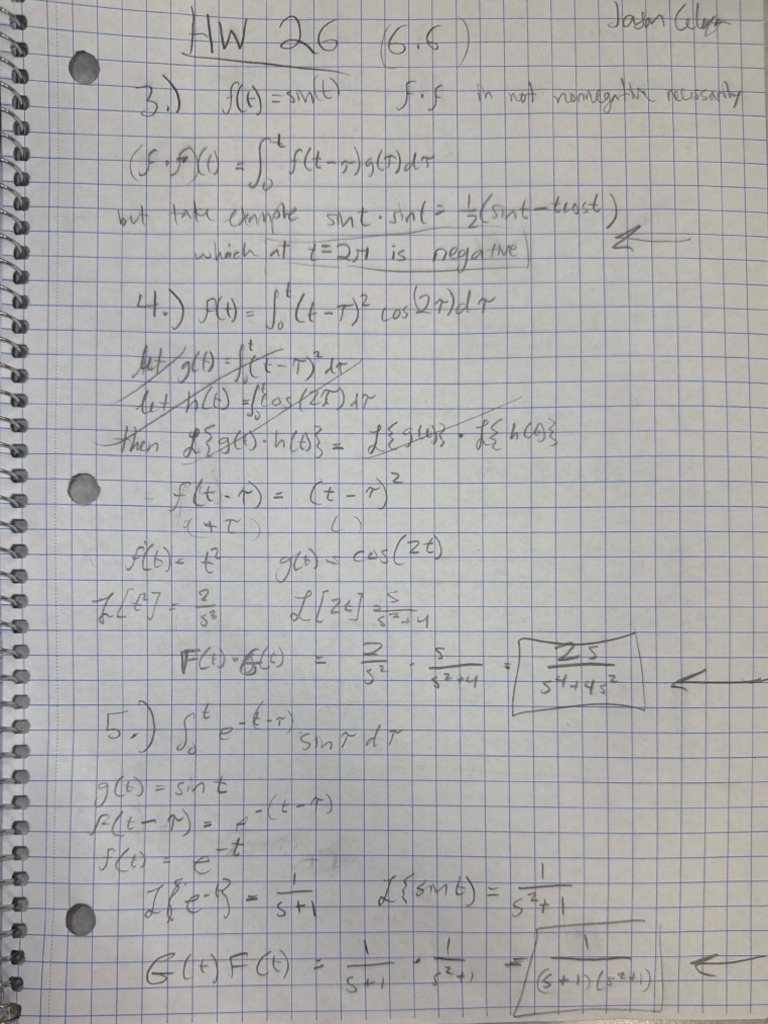 HW 26 (6.6)
Jason
3.) f(t) = sin(t) f·f is not nonnegative necessarily
(f·f)(t) = ∫₀ᵗ f(t-τ)g(τ)dτ
but take example sint·sint = 1/2(sint-tcost)
which at t=2π is negative
4.) f(t) = ∫₀ᵗ (t-τ)² cos(2τ)dτ
let g(t) = ∫₀ᵗ(t-τ)²dτ
let h(t) = ∫₀ᵗcos(2τ)dτ
then ℒ{g(t)·h(t)} = ℒ{g(t)}·ℒ{h(t)}
f(t-τ) = (t-τ)²
(+τ) ( )
f(t) = t² g(t) = cos(2t)
ℒ[t²] = 2/s³ ℒ[2t] = s/s²+4
F(t)·G(t) = 2/s² · s/s²+4 = 2s/s⁴+4s²
5.) ∫₀ᵗ e^-(t-τ) sinτdτ
g(t) = sint
f(t-τ) = e^-(t-τ)
f(t) = e^-t
ℒ{e^-t} = 1/s+1 ℒ{sint) = 1/s²+1
G(t)F(t) = 1/s+1 · 1/s²+1 = 1/(s+1)(s²+1)